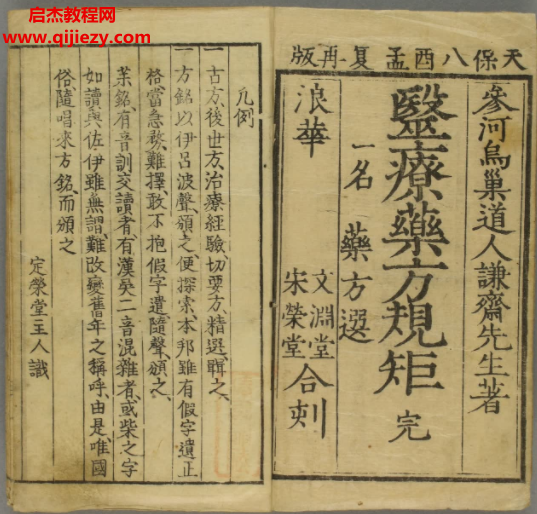 启杰教程网
www.qijiezy.com
天保八酉孟夏再版
參河烏巢道人謙齋先生著
醫療藥方規矩 完
一名 藥方選
浪華
文淵堂
宋榮堂
合刻
凡例
一古方後世方治療經驗切要方精選輯之
一方銘以伊呂波聲類之便探索本邦雖有假字遺正
格當急務難擇敢不抱假字遺隨聲類之
藥銘有音訓交讀者有漢吳二音混雜者或柴之字
如讀與佐伊雖無謂難改變舊年之稱呼由是唯國
俗隨唱來方銘而類之
定榮堂主人識